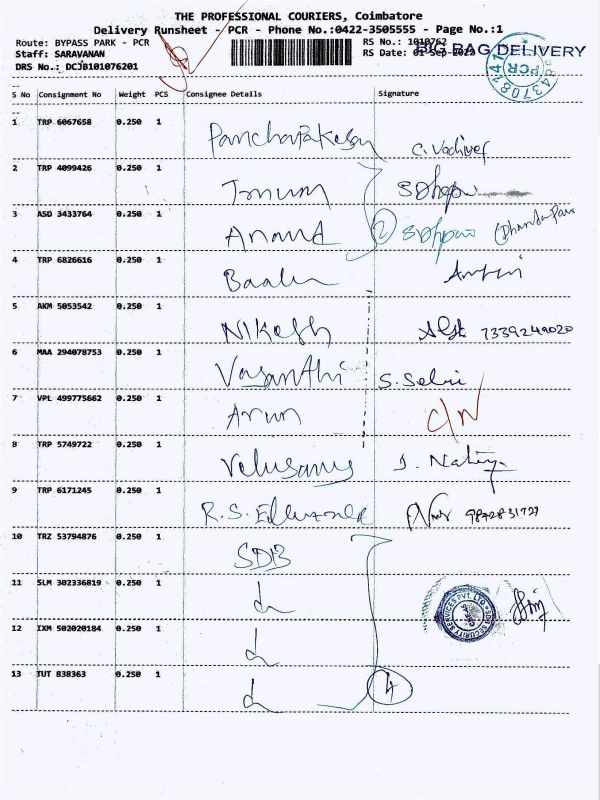 THE PROFESSIONAL COURIERS, Coimbatore
Delivery Runsheet - PCR - Phone No.:0422-3505555 - Page No.:1
Route: BYPASS PARK - PCR RS No.: 1010762
BIG BAG DELIVERY
Staff: SARAVANAN RS Date: 01-Sep-2023
DRS No.: DCJB101076201
PCR
S No Consignment No Weight PCS Consignee Details Signature
1 TRP 6067658 0.250 1 Panchapakesan C. Vadivel
2 TRP 4099426 0.250 1
3 ASD 3433764 0.250 1 Anand 2
4 TRP 6826616 0.250 1
5 AKM 5053542 0.250 1 Nikesh 7339249020
6 MAA 294078753 0.250 1 Vasanthi S. Selvi
7 VPL 499775662 0.250 1 Arun
8 TRP 5749722 0.250 1 Velusamy
9 TRP 6171245 0.250 1 R.S.
10 TRZ 53794876 0.250 1 SDB
11 SLM 302336819 0.250 1
12 IXM 502020184 0.250 1
13 TUT 838363 0.250 1 4